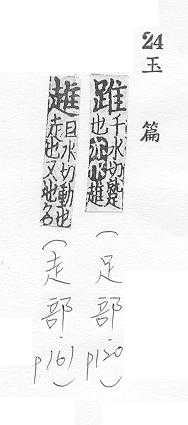 24
玉篇
踓千水切蹵也亦作趡(足部.p120)
趡且水切動也走也又地名(走部.p161)